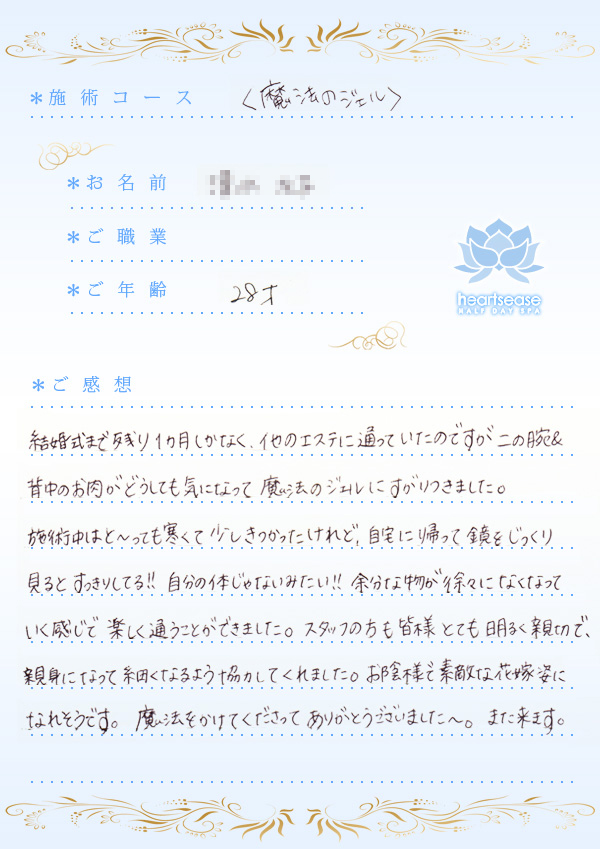 ＊施術コース 〈魔法のジェル〉
＊お名前
＊ご職業
＊ご年齢 28才
heartsease
HALF DAY SPA
＊ご感想
結婚式まで残り1ヵ月しかなく、他のエステに通っていたのですが二の腕&
背中のお肉がどうしても気になって魔法のジェルにすがりつきました。
施術中はと〜っても寒くて少しきつかったけれど、自宅に帰って鏡をじっくり
見るとすっきりしてる!! 自分の体じゃないみたい!! 余分な物が徐々になくなって
いく感じで楽しく通うことができました。スタッフの方も皆様とても明るく親切で、
親身になって細くなるよう協力してくれました。お陰様で素敵な花嫁姿に
なれそうです。魔法をかけてくださってありがとうございました〜。また来ます。